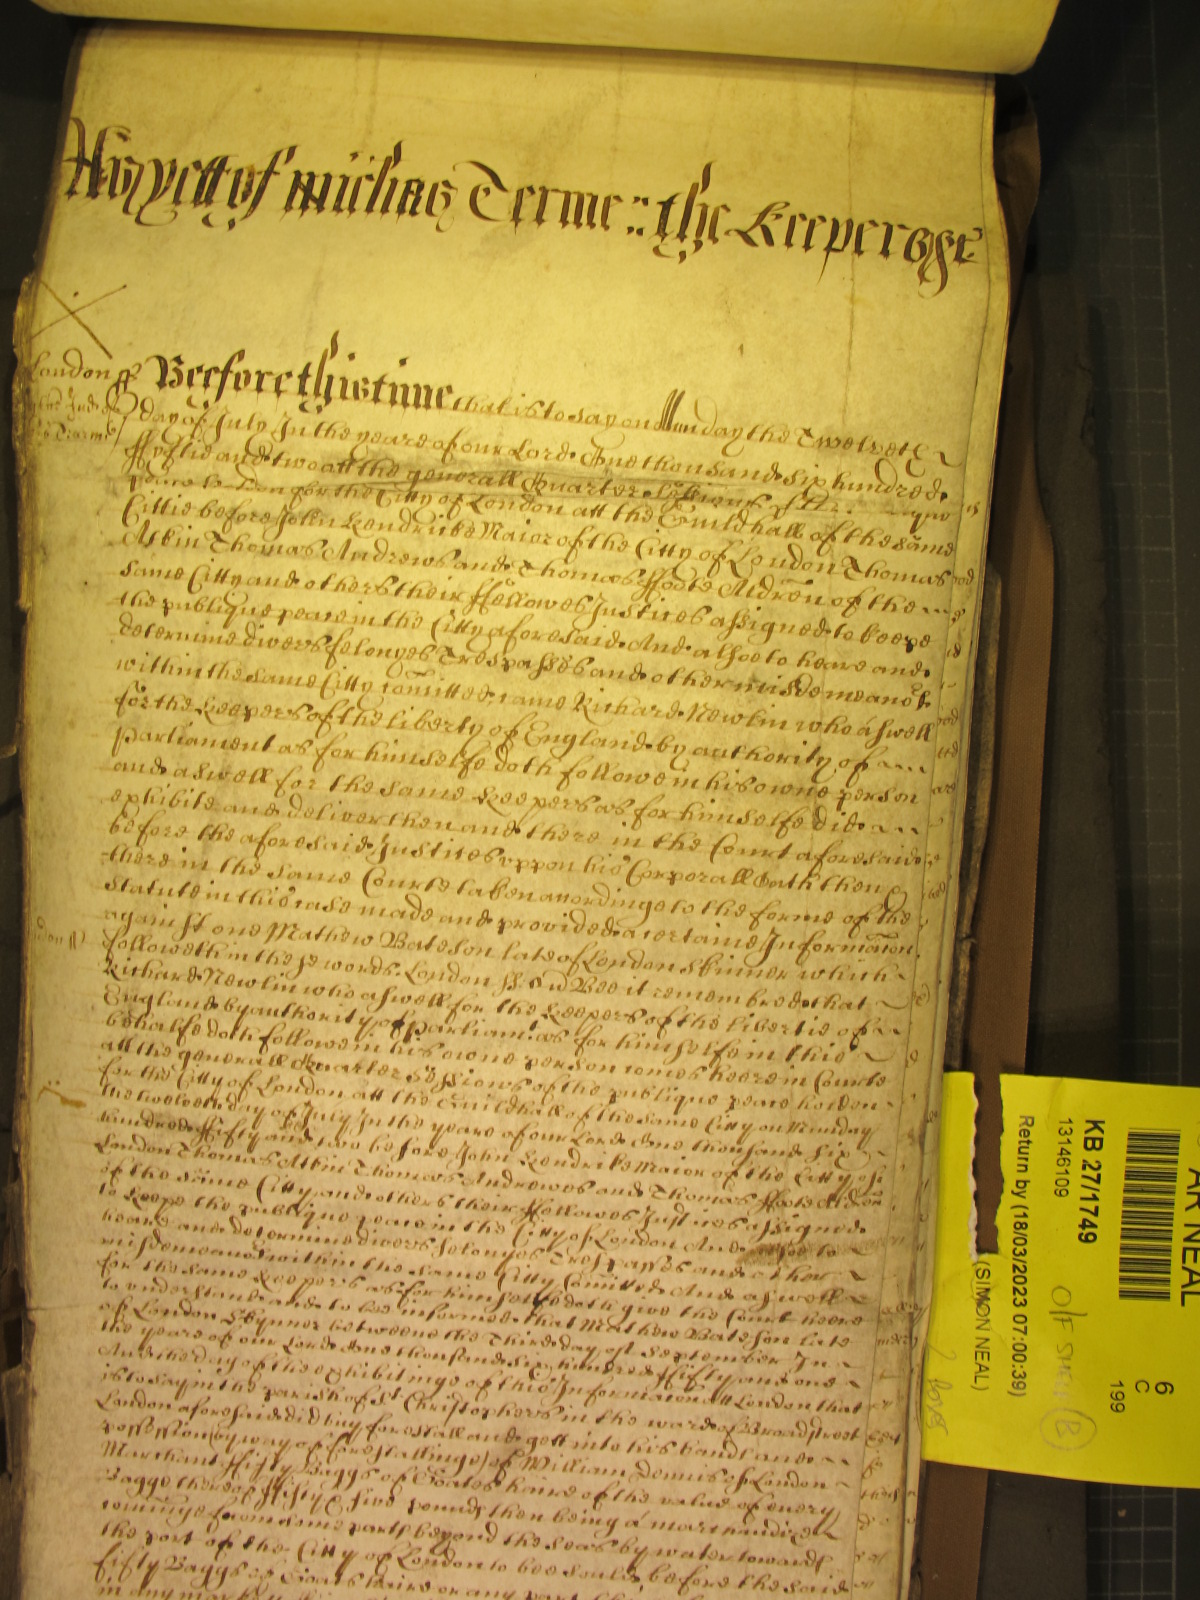 As yett of Micħas Terme :: the Keepers &c
London ss Beefore this time that is to say on Munday the Twelveth
day of July In the yeare of our Lord One thousand six hundred
ffyftie and two att the generall Quarter Sessions of the
peace holden for the Citty of London att the Guildhall of the same
Cittie before John Kendricke Maior of the Citty of London Thomas
Atkin Thomas Andrewes and Thomas ffoote Aldren of the
same Citty and others their ffellowes Justices assigned to keepe
the publique peace in the Citty aforesaid And alsoe to heare and
determine divers felonyes Trespasses and other misdemeanors
within the same Citty comitted, came Richard Newlin who aswell
for the Keepers of the liberty of England by authority of
Parliament as for himselfe doth followe in his owne person
and aswell for the same Keepers as for himselfe did
exhibite and deliver then and there in the Court aforesaid
before the aforesaid Justices uppon his Corporall Oath then
there in the same Courte taken accordinge to the forme of the
Statute in this case made and provided a certaine Informacon
against one Mathew Bateson late of London Skinner which
followeth in these words London ss Bee it remembred that
Richard Newlin who aswell for the Keepers of the libertie of
England by authority of Parliamt as for himselfe in this
behalfe doth followe in his owne person comes heere in Courte
att the generall Quarter Sessions of the publique peace holden
for the Citty of London att the Guildhall of the same Citty on Munday
the twelveth day of July In the yeare of our Lord One thousand six
hundred ffifty and two before John Kendricke Maior of the Citty of
London Thomas Atkin Thomas Andrewes and Thomas ffoote Aldren
of the same Citty and others their ffellowes Justices assigned
to keepe the publique peace in the Citty of London And alsoe to
heare and determine divers felonyes Trespasses and other
misdemeanors within the same Citty Comitted And aswell
for the same Keepers as for himselfe doth give the Court heere
to understand and to bee informed that Mathew Bateson late
of London Skynner betweene the Third day of September In
the yeare of our Lord One thousand six hundred ffifty and one
And the day of the exhibitinge of this Informacon att London that
is to say in the parish of St Christophers in the ward of Broadstreet
London aforesaid did buy forestall and gett into his hands and
possession (by way of forestallinge) of William Dennis of London
Marchant ffifty Baggs of Goates haire of the value of every
Bagge thereof ffifty & five pounds then being a marchandize
comynge from some parts beyond the seas by water towards
the port of the Citty of London to bee sould, before the said
fifty Baggs of Goats haire or any part
in any market
AR NEAL
6
C
199
KB 27/1749
13146109
Return by (18/03/2023 07:00:39)
(SIMON NEAL)